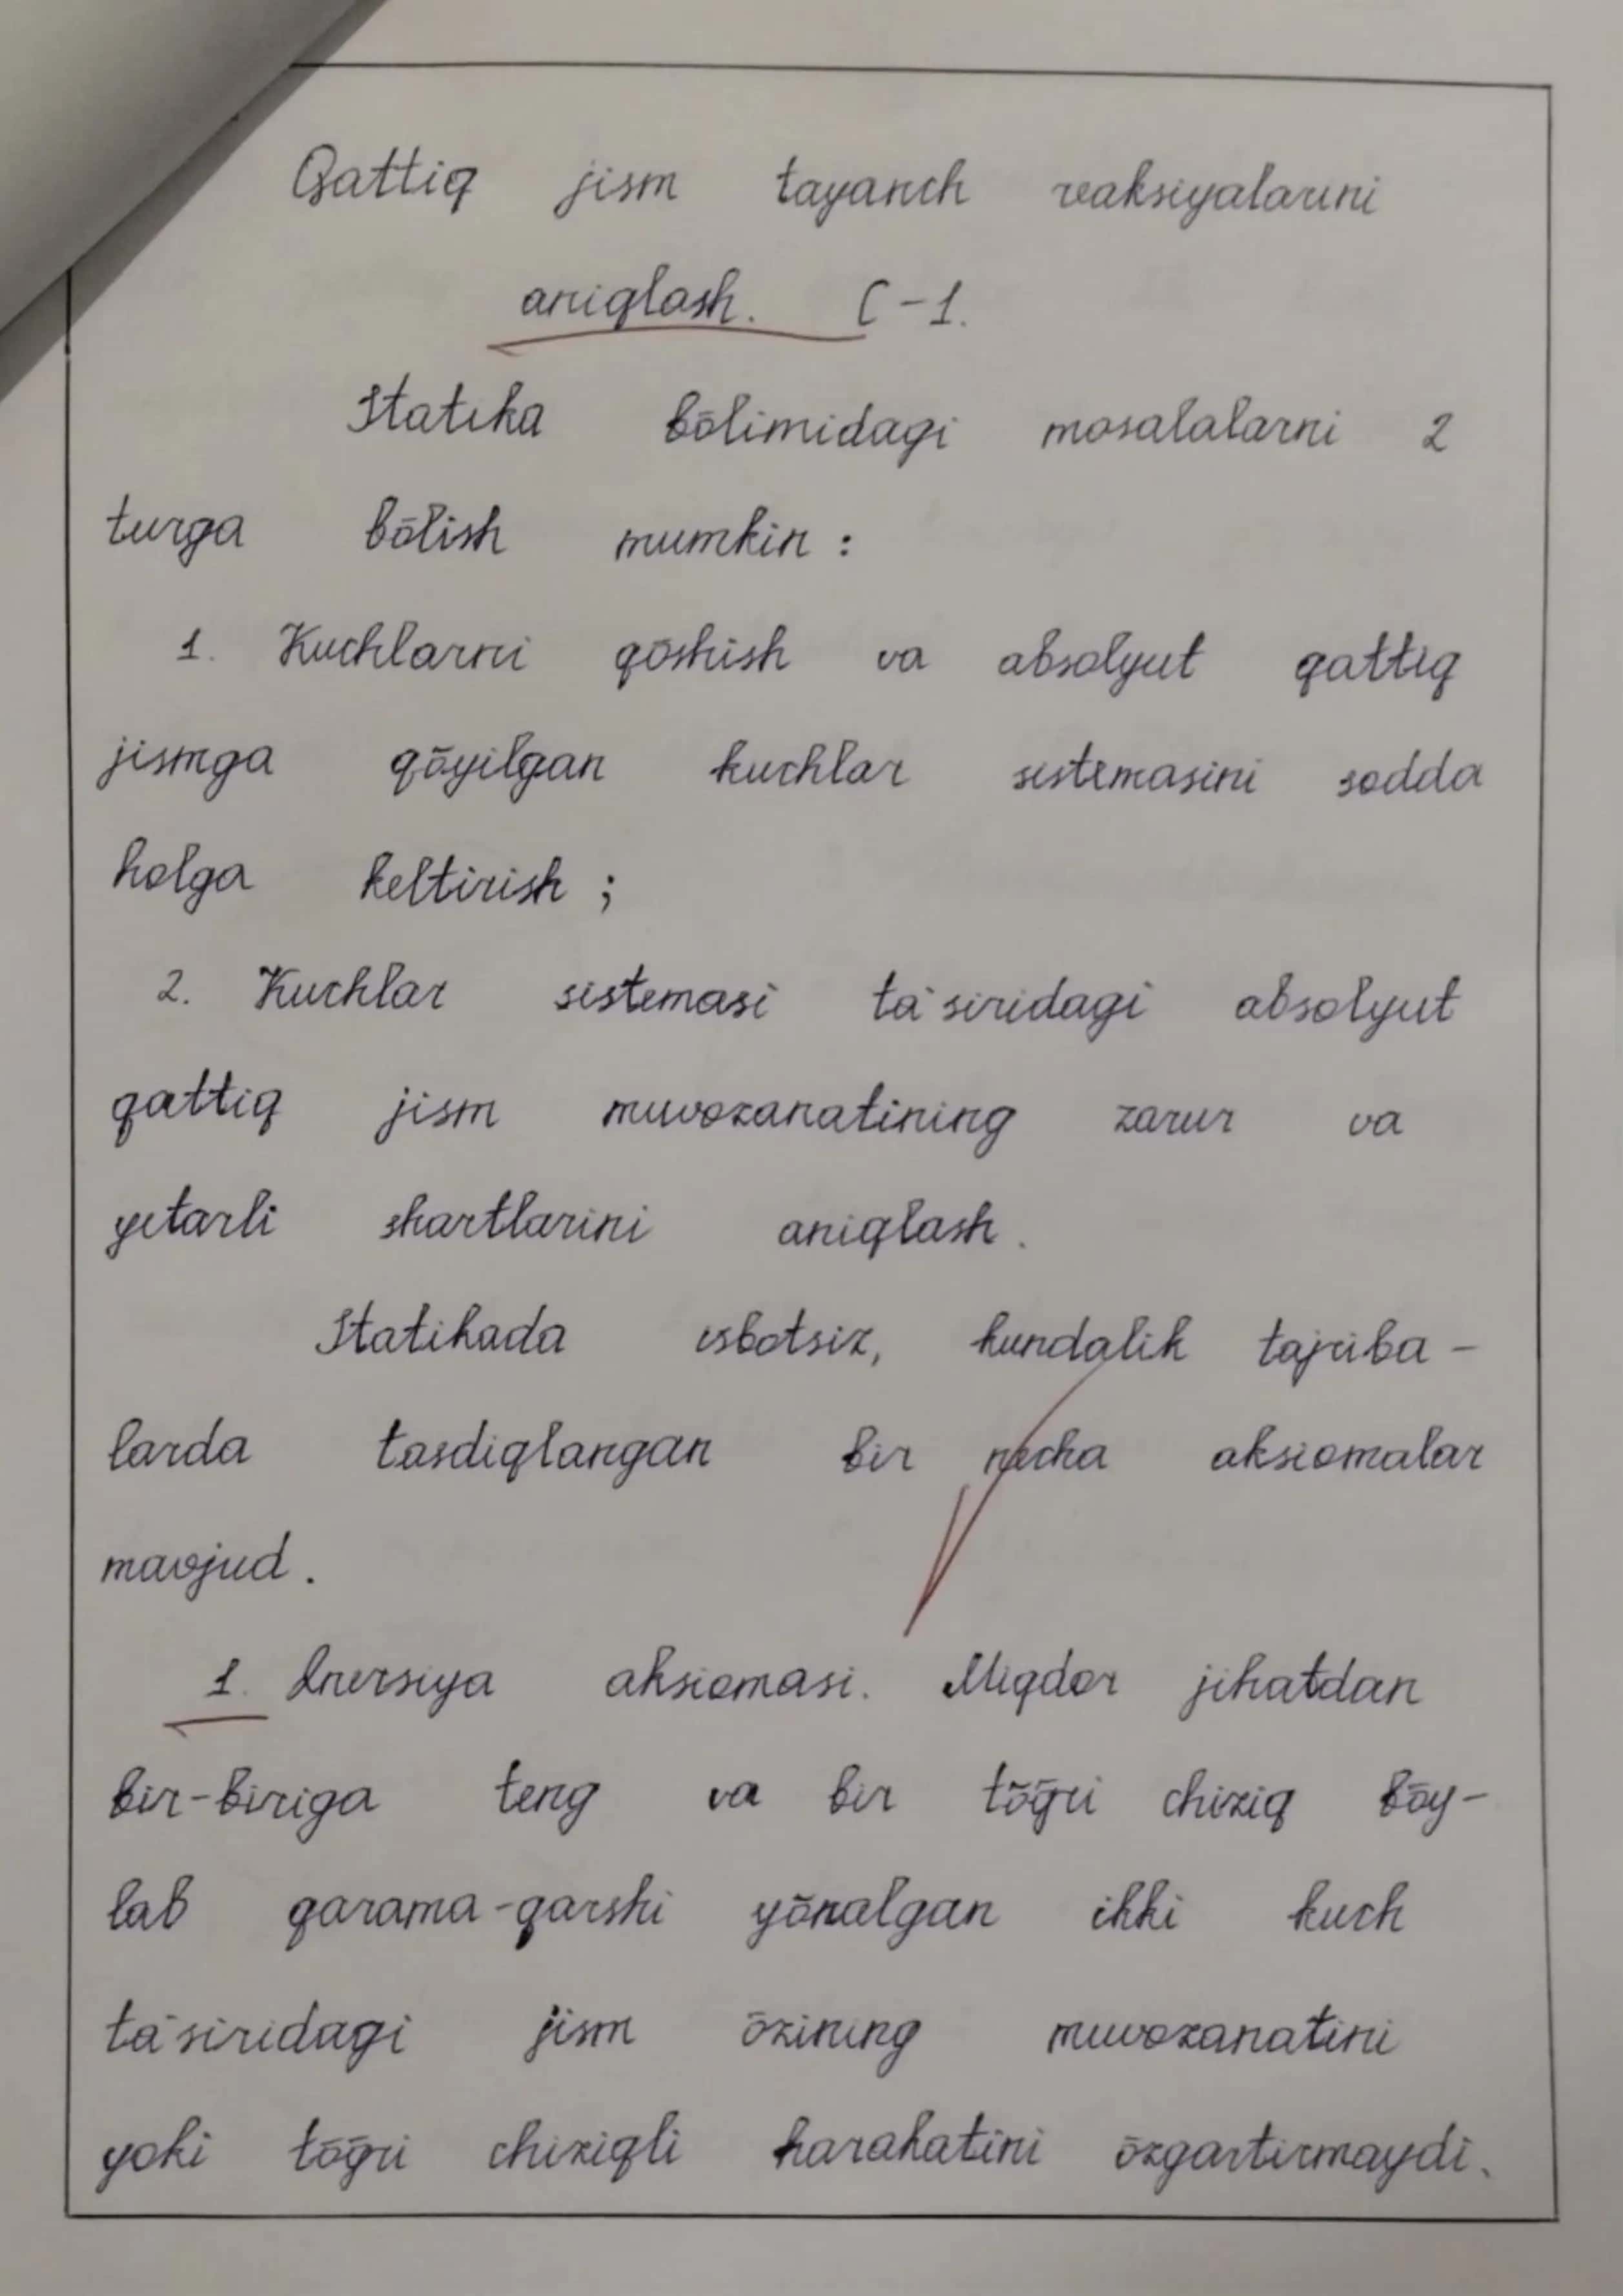 Qattiq jism tayanch reaksiyalarini
aniqlash. C-1.
Statika bōlimidagi masalalarni 2
turga bōlish mumkin:
1. Kuchlarni qōshish va absolyut qattiq
jismga qōyilgan kuchlar sistemasini sodda
holga keltirish;
2. Kuchlar sistemasi ta'siridagi absolyut
qattiq jism muvozanatining zarur va
yetarli shartlarini aniqlash.
Statikada isbotsiz, kundalik tajriba-
larda tasdiqlangan bir necha aksiomalar
mavjud.
1. Inersiya aksiomasi. Miqdor jihatdan
bir-biriga teng va bir tōḡri chiziq bōy-
lab qarama-qarshi yōnalgan ikki kuch
ta'siridagi jism ōzining muvozanatini
yoki tōḡri chiziqli harakatini ōzgartirmaydi.